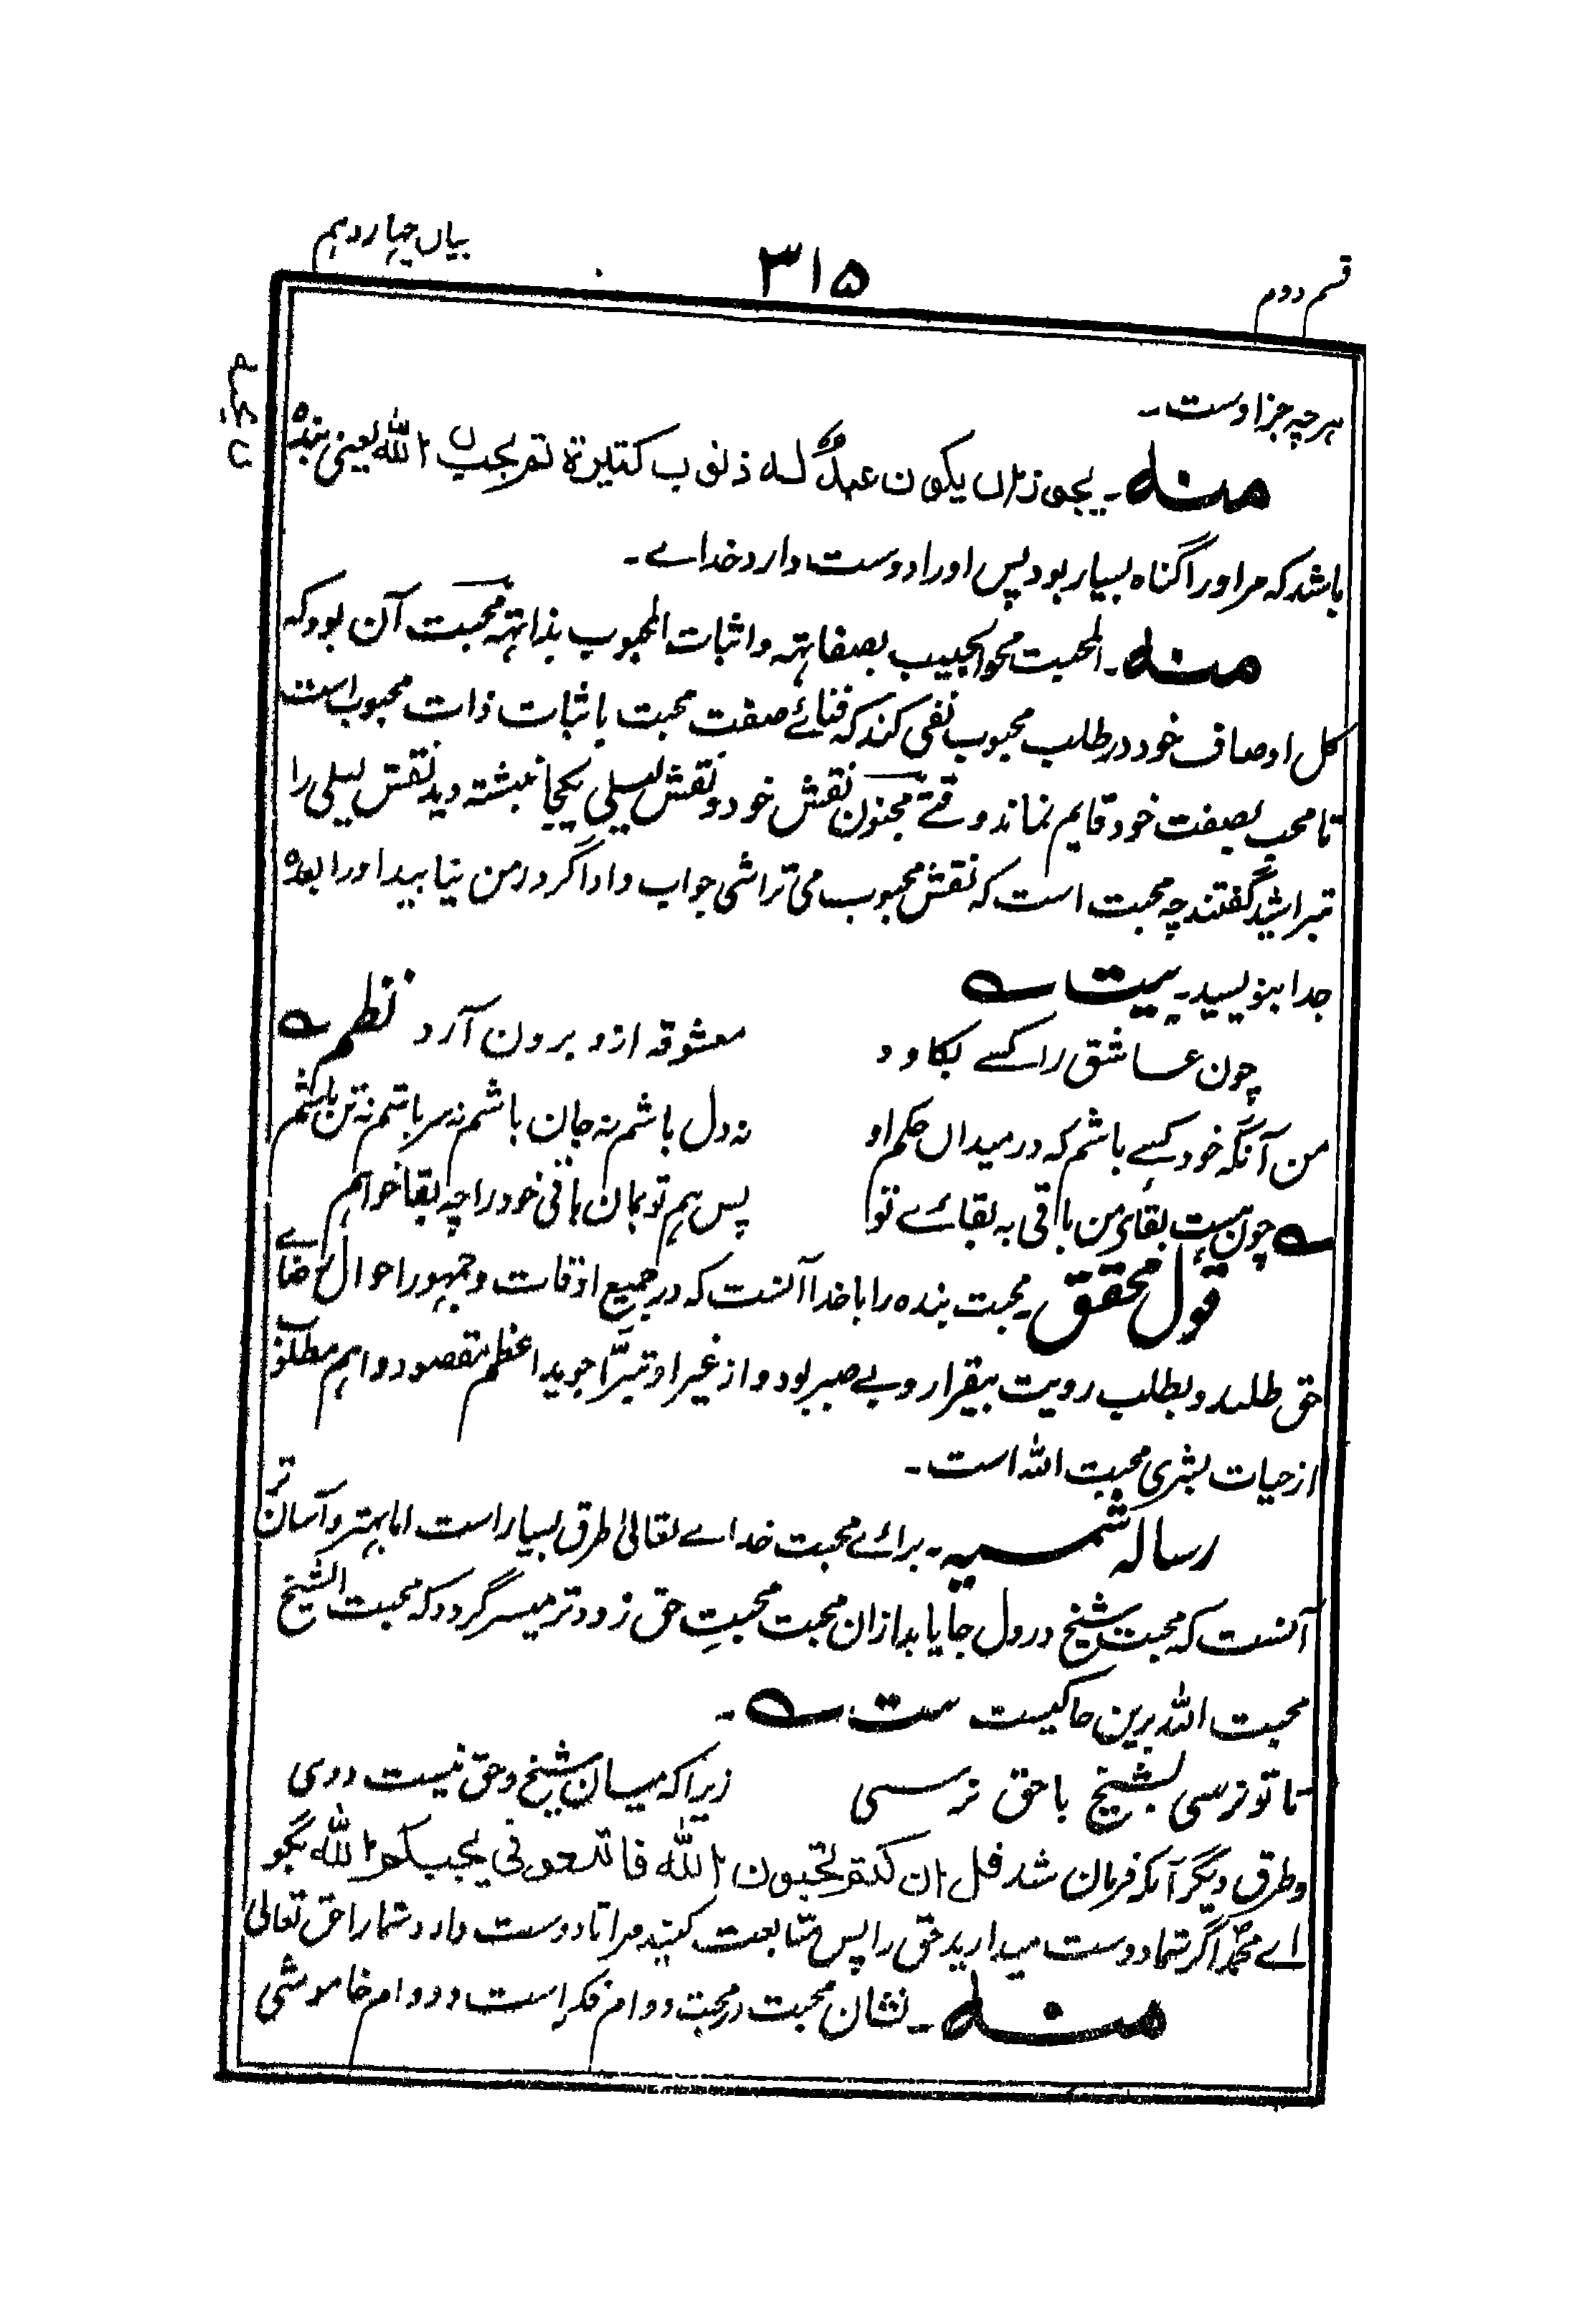 قسم دوم
۳۱۵
بیاں چہاردہم
ہرچہ جزاوست۔
منہ۔ یجوز ان یکون عبدٌ لہ ذنوب کثیرة ثم یحب اللہ یعنی بندہ
باشد کہ مراورا گناہ بسیار بود پس اورا دوست دارد خداے۔
منہ۔ المحبت محو الحبیب بصفاتہ واثبات المحبوب بذاتہ محبت آن بود کہ
کل اوصاف خود در طلب محبوب نفی کند کہ فنائے صفت محبت باثبات ذات محبوب است
تا محب بصفت خود قایم نماند وقتے مجنون نقش خود و نقش لیلی یکجا نبشتہ دید نقش لیلی را
تبراشید گفتند چہ محبت است کہ نقش محبوب می تراشی جواب داد اگر در من نیابید اورا بعدہ
جدا بنویسید۔ بیت
چون عاشق را کسے بکاود
معشوقہ ازو برون آرد نظم
من آنگہ خود کسے باشم کہ در میداں حکم او
نہ دل باشم نہ جان باشم نہ سر باشم نہ تن باشم
چون ہست بقای من باقی بہ بقائے تو
پس ہم تو بمان باقی خود را چہ بقا خواہم
قول محقق۔ محبت بندہ را با خدا آنست کہ در جمیع اوقات و جمہور احوال رضاے
حق طلبد و بطلب رویت بیقرار و بے صبر بود و از غیر او تبرّا جوید اعظم مقصود و اہم مطلوب
از حیات بشری محبت اللہ است۔
رسالہ شمسیہ۔ برائے محبت خداے تعالیٰ طرق بسیار است اما بہتر و آسان تر
آنست کہ محبت شیخ در دل جا یابد ازان محبت محبتِ حق زودتر میسر گردد کہ محبت الشیخ
محبت اللہ برین حاکیست ست۔
تا تو نرسی بشیخ با حق نرسی
زیرا کہ میان شیخ و حق نیست دوی
و طرق دیگر آنکہ فرمان شد قل ان کنتم تحبون اللہ فاتبعونی یحببکم اللہ بگو
اے محمدؐ اگر شما دوست میدارید حق را پس متابعت کنید مرا تا دوست دارد شمارا حق تعالیٰ
منہ۔ نشان محبت در محبت دوام فکر است و دوام خاموشی